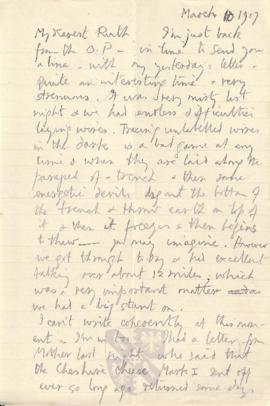 March 10 1917
My dearest Ruth I'm just back
from the O.P. – in time to send you
a line – with my yesterday's letter.
quite an interesting time & very
strenuous. It was very misty last
night & we had endless difficulties
laying wires. Tracing unlabelled wires
in the dark is a bad game at any
time & when they are laid along the
parapet of a trench & then some
energetic devils dig out the bottom of
the trench & throw earth on top of
it & then it freezes & then begins
to thaw — you may imagine. However
we got through today & had excellent
talking over about 12 miles; which
was a very important matter as
we had a big stunt on.
I can't write coherently at this mom-
ent – I'm I had a letter from
Mother last night who said that
the Cheshire cheese Mark I sent off
ever so long ago returned some days